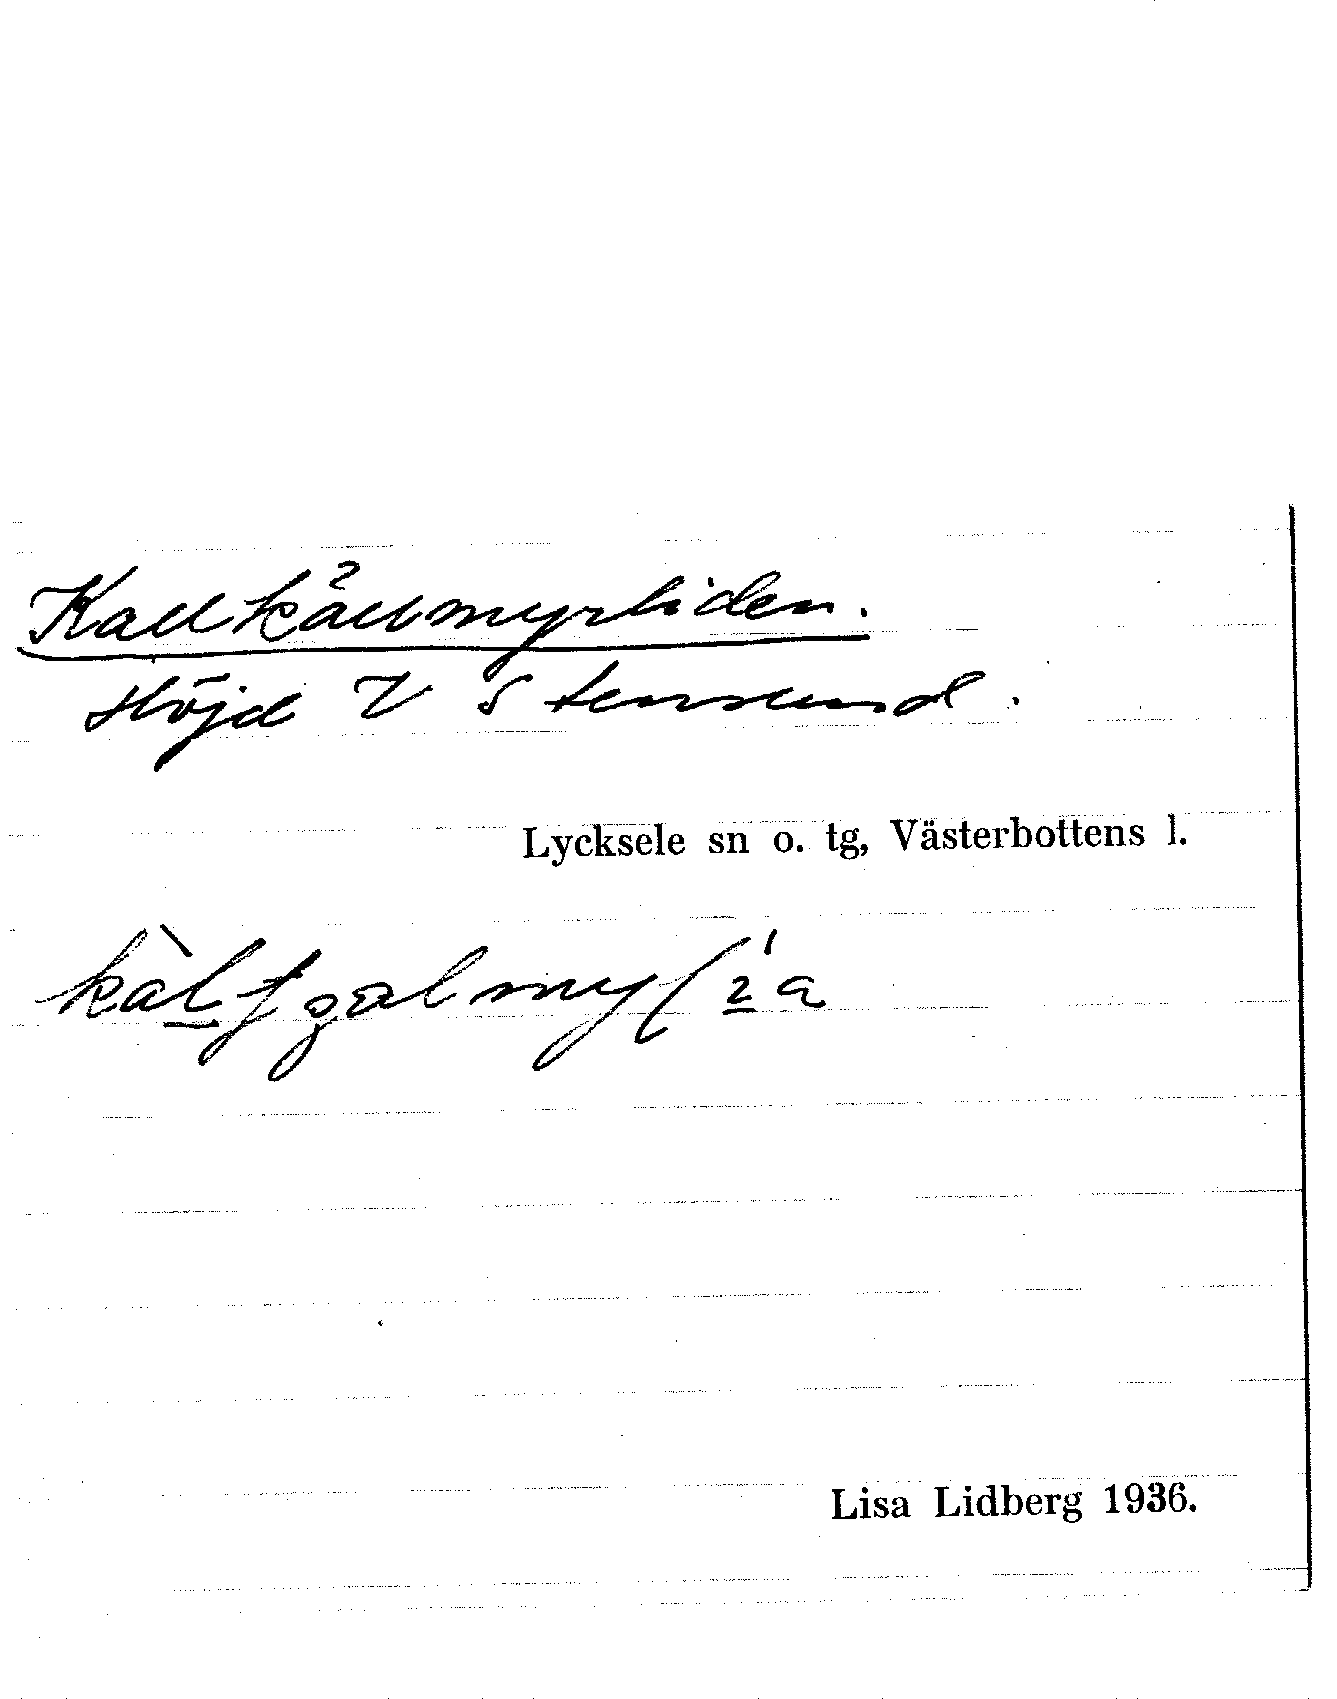 Kallkällmyrliden.
Höjd V Stensund.
Lycksele sn o. tg, Västerbottens l.
Lisa Lidberg 1936.